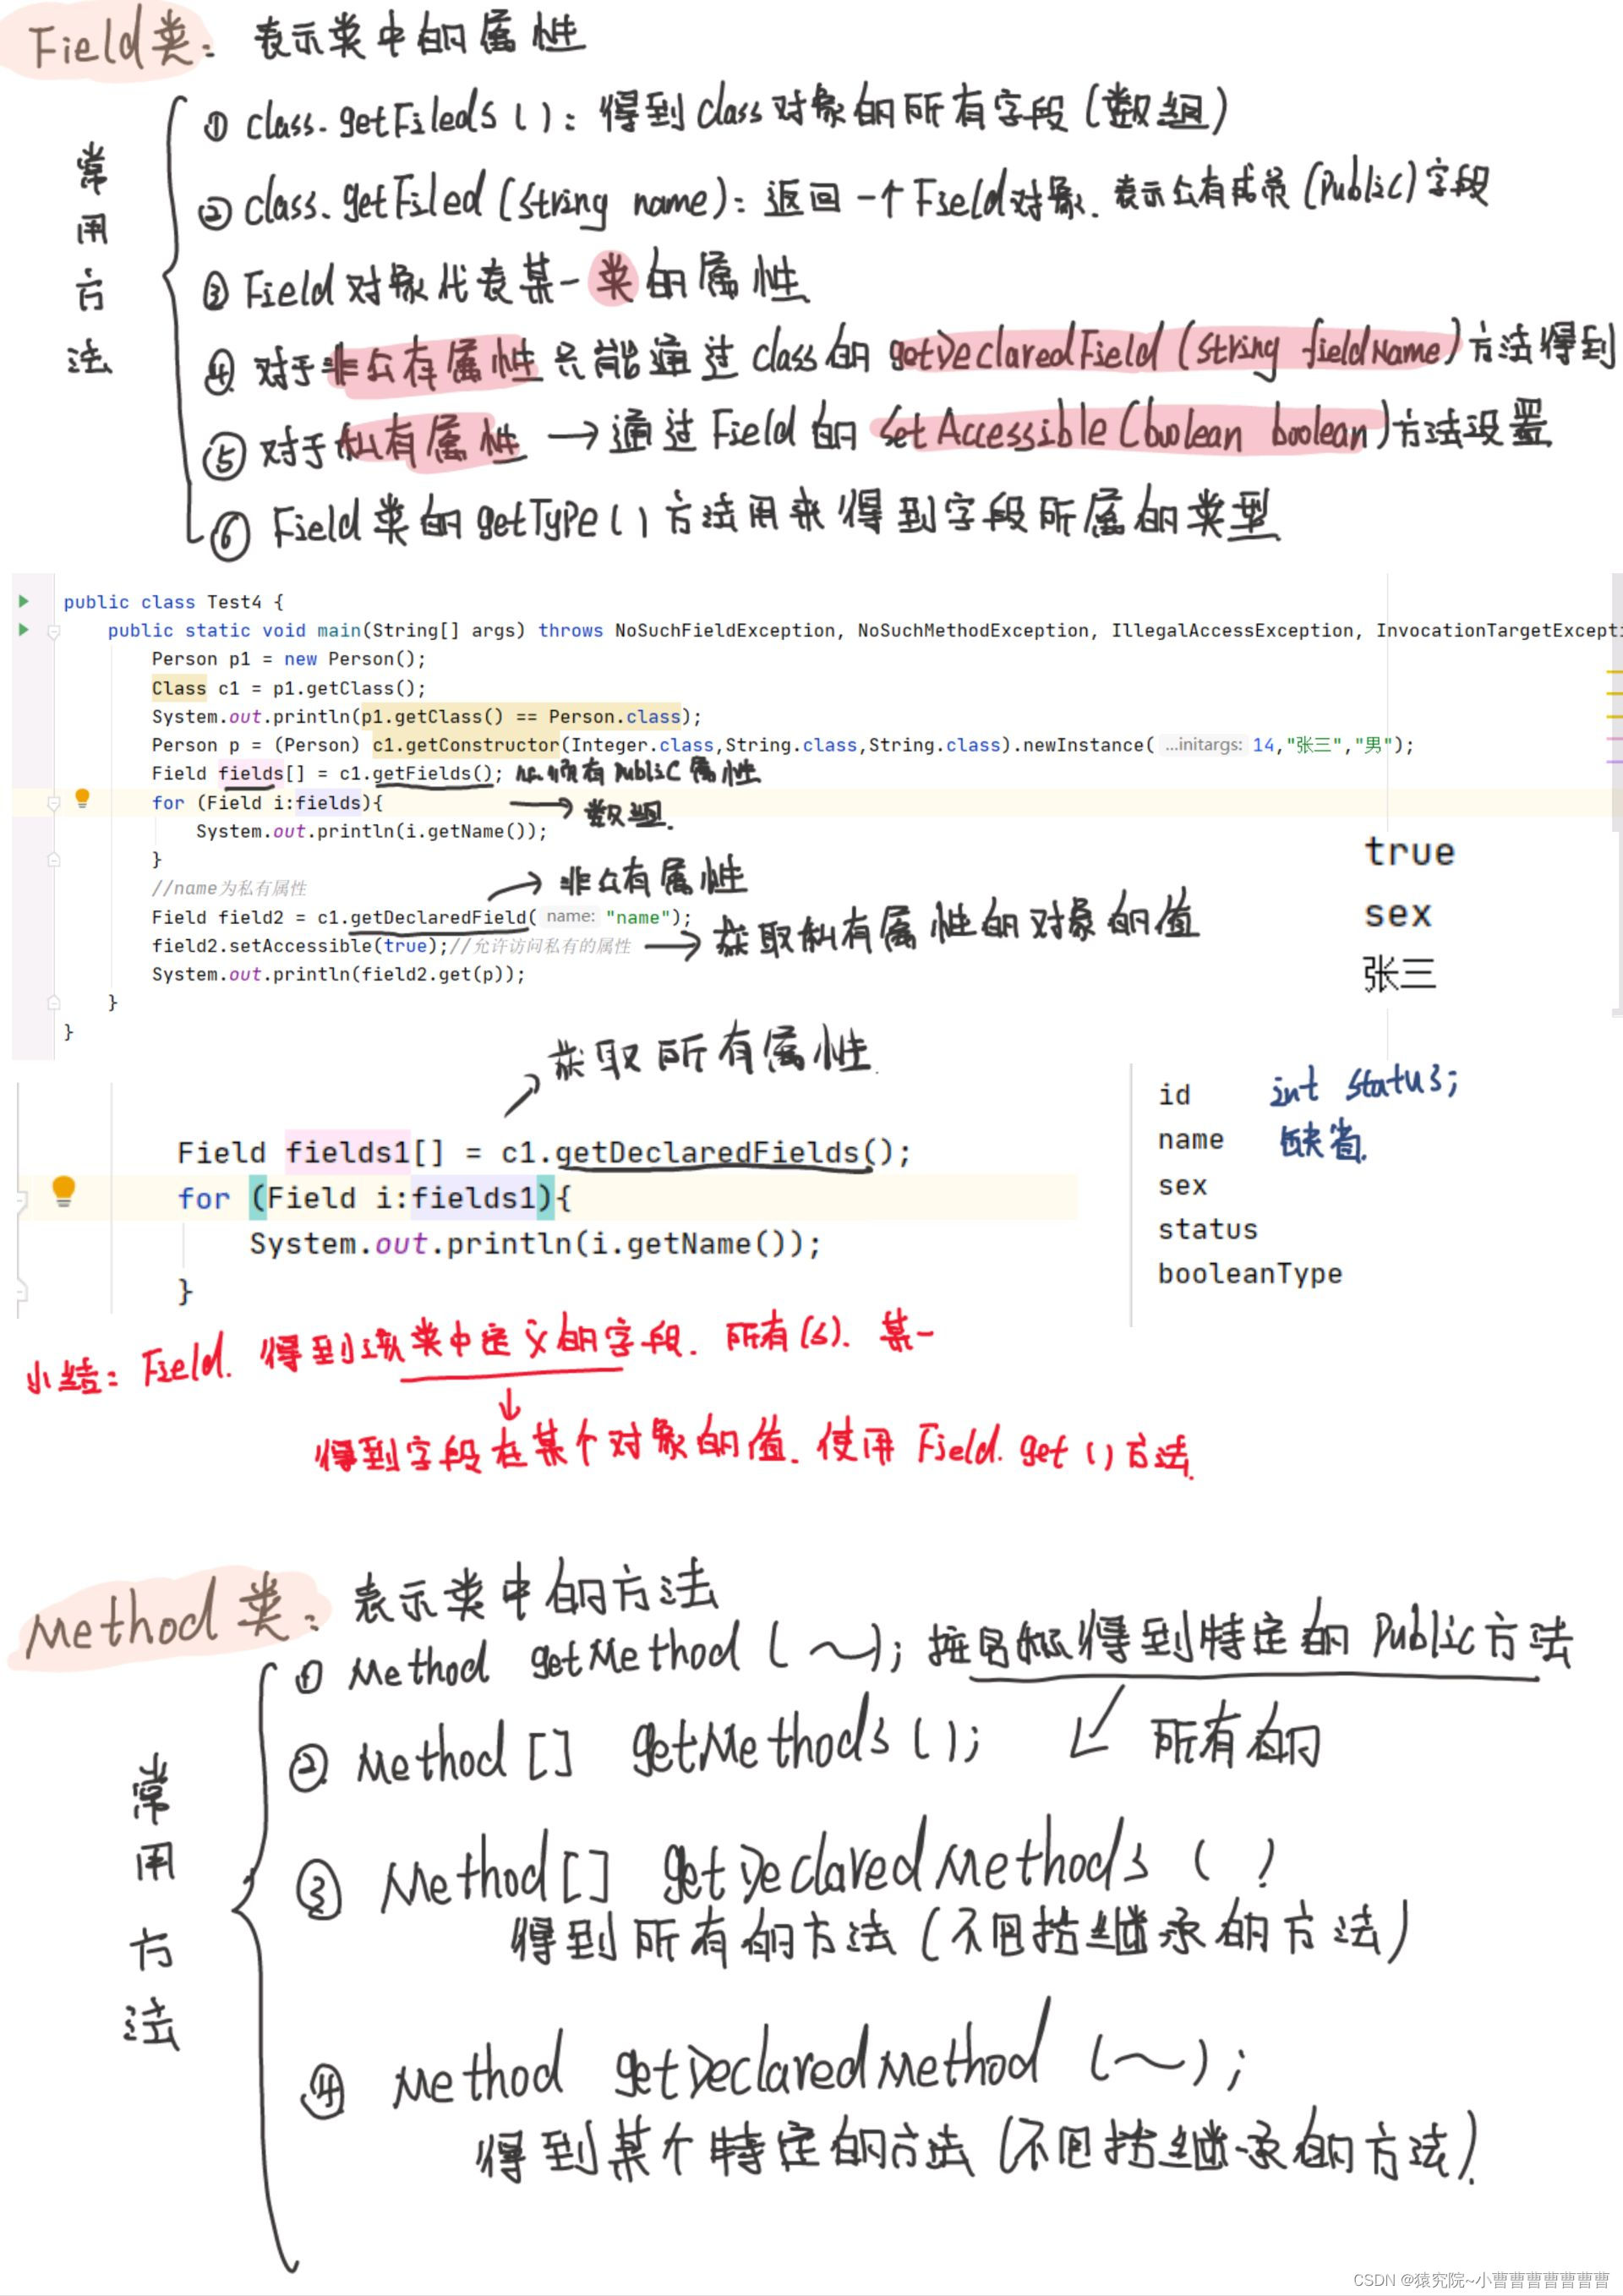 Field类: 表示类中的属性
常用方法
① class.getFileds(): 得到class对象的所有字段(数组)
② class.getFiled(String name): 返回一个Field对象. 表示公有成员(Public)字段
③ Field对象代表某一类的属性
④ 对于非公有属性只能通过class的getDeclaredField(String fieldName)方法得到
⑤ 对于私有属性 → 通过Field的setAccessible(boolean boolean)方法设置
⑥ Field类的getType()方法用来得到字段所属的类型
public class Test4 {
public static void main(String[] args) throws NoSuchFieldException, NoSuchMethodException, IllegalAccessException, InvocationTargetExcepti
Person p1 = new Person();
Class c1 = p1.getClass();
System.out.println(p1.getClass() == Person.class);
Person p = (Person) c1.getConstructor(Integer.class,String.class,String.class).newInstance( ...initargs: 14,"张三","男");
Field fields[] = c1.getFields(); 所有Public属性
for (Field i:fields){ → 数组.
System.out.println(i.getName());
}
//name为私有属性 → 非公有属性
Field field2 = c1.getDeclaredField( name: "name");
field2.setAccessible(true);//允许访问私有的属性 → 获取私有属性的对象的值
System.out.println(field2.get(p));
}
}
true
sex
张三
获取所有属性.
Field fields1[] = c1.getDeclaredFields();
for (Field i:fields1){
System.out.println(i.getName());
}
id int status;
name 缺省.
sex
status
booleanType
小结: Field. 得到该类中定义的字段. 所有(s). 某一
↓
得到字段在某个对象的值. 使用 Field.get()方法.
Method类: 表示类中的方法
常用方法
① Method getMethod(~); 按名称得到特定的Public方法
② Method[] getMethods(); ↙ 所有的
③ Method[] getDeclaredMethods()
得到所有的方法(不包括继承的方法)
④ Method getDeclaredMethod(~);
得到某个特定的方法(不包括继承的方法)
CSDN @猿究院~小曹曹曹曹曹曹曹